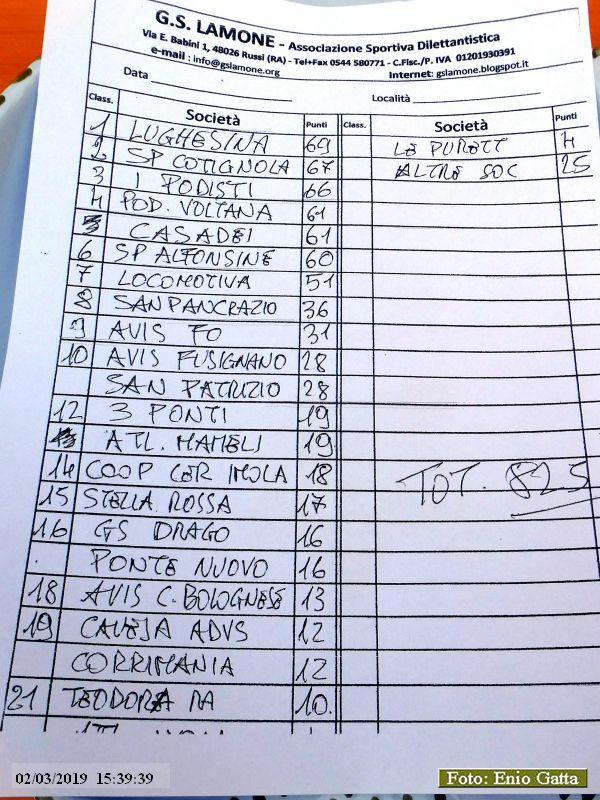 G.S. LAMONE - Associazione Sportiva Dilettantistica
Via E. Babini 1, 48026 Russi (RA) - Tel+Fax 0544 580771 - C.Fisc./P. IVA 01201930391
e-mail : info@gslamone.org Internet: gslamone.blogspot.it
Data Località
Class. Società Punti Class. Società Punti
1 LUGHESINA 69 LE PURETT 4
2 SP COTIGNOLA 67 ALTRE SOC 25
3 I PODISTI 66
4 POD. VOLTANA 61
CASADEI 61
6 SP ALFONSINE 60
7 LOCOMOTIVA 51
8 SAN PANCRAZIO 36
9 AVIS FO 31
10 AVIS FUSIGNANO 28
SAN PATRIZIO 28
12 3 PONTI 19
ATL. MAMELI 19
14 COOP CER IMOLA 18 TOT. 825
15 STELLA ROSSA 17
16 GS DRAGO 16
PONTE NUOVO 16
18 AVIS C. BOLOGNESE 13
19 CAVEJA ADVS 12
CORRIMANIA 12
21 TEODORA RA 10
02/03/2019 15:39:39
Foto: Enio Gatta